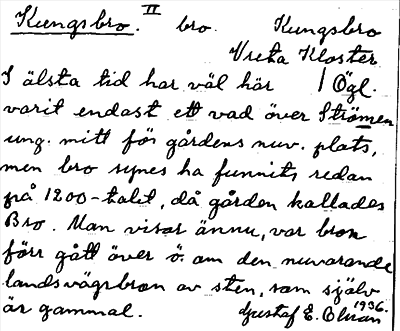 Kungsbro. II bro. Kungsbro
Vreta Kloster
I älsta tid har väl här / Ögl.
varit endast ett vad över Strömen
ung. mitt för gårdens nuv. plats,
men bro synes ha funnits redan
på 1200-talet, då gården kallades
Bro. Man visar ännu, var bron
förr gått över ö. om den nuvarande
landsvägsbron av sten, som själv
är gammal. Gustaf E. Olsson 1936.